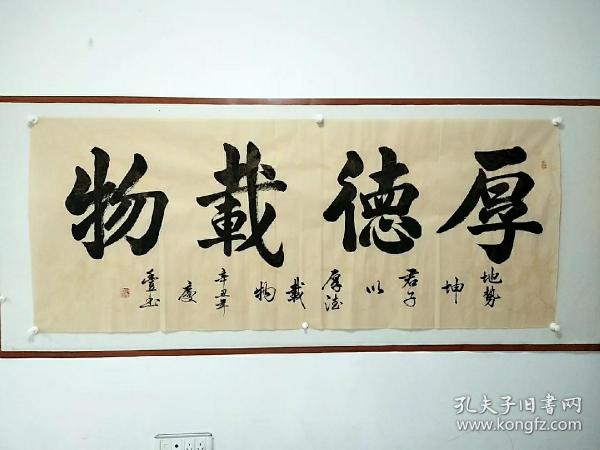 厚德載物
地勢
坤
君子
以
厚德
載
物
辛丑年
慶
孔夫子旧書网
www.kongfz.com